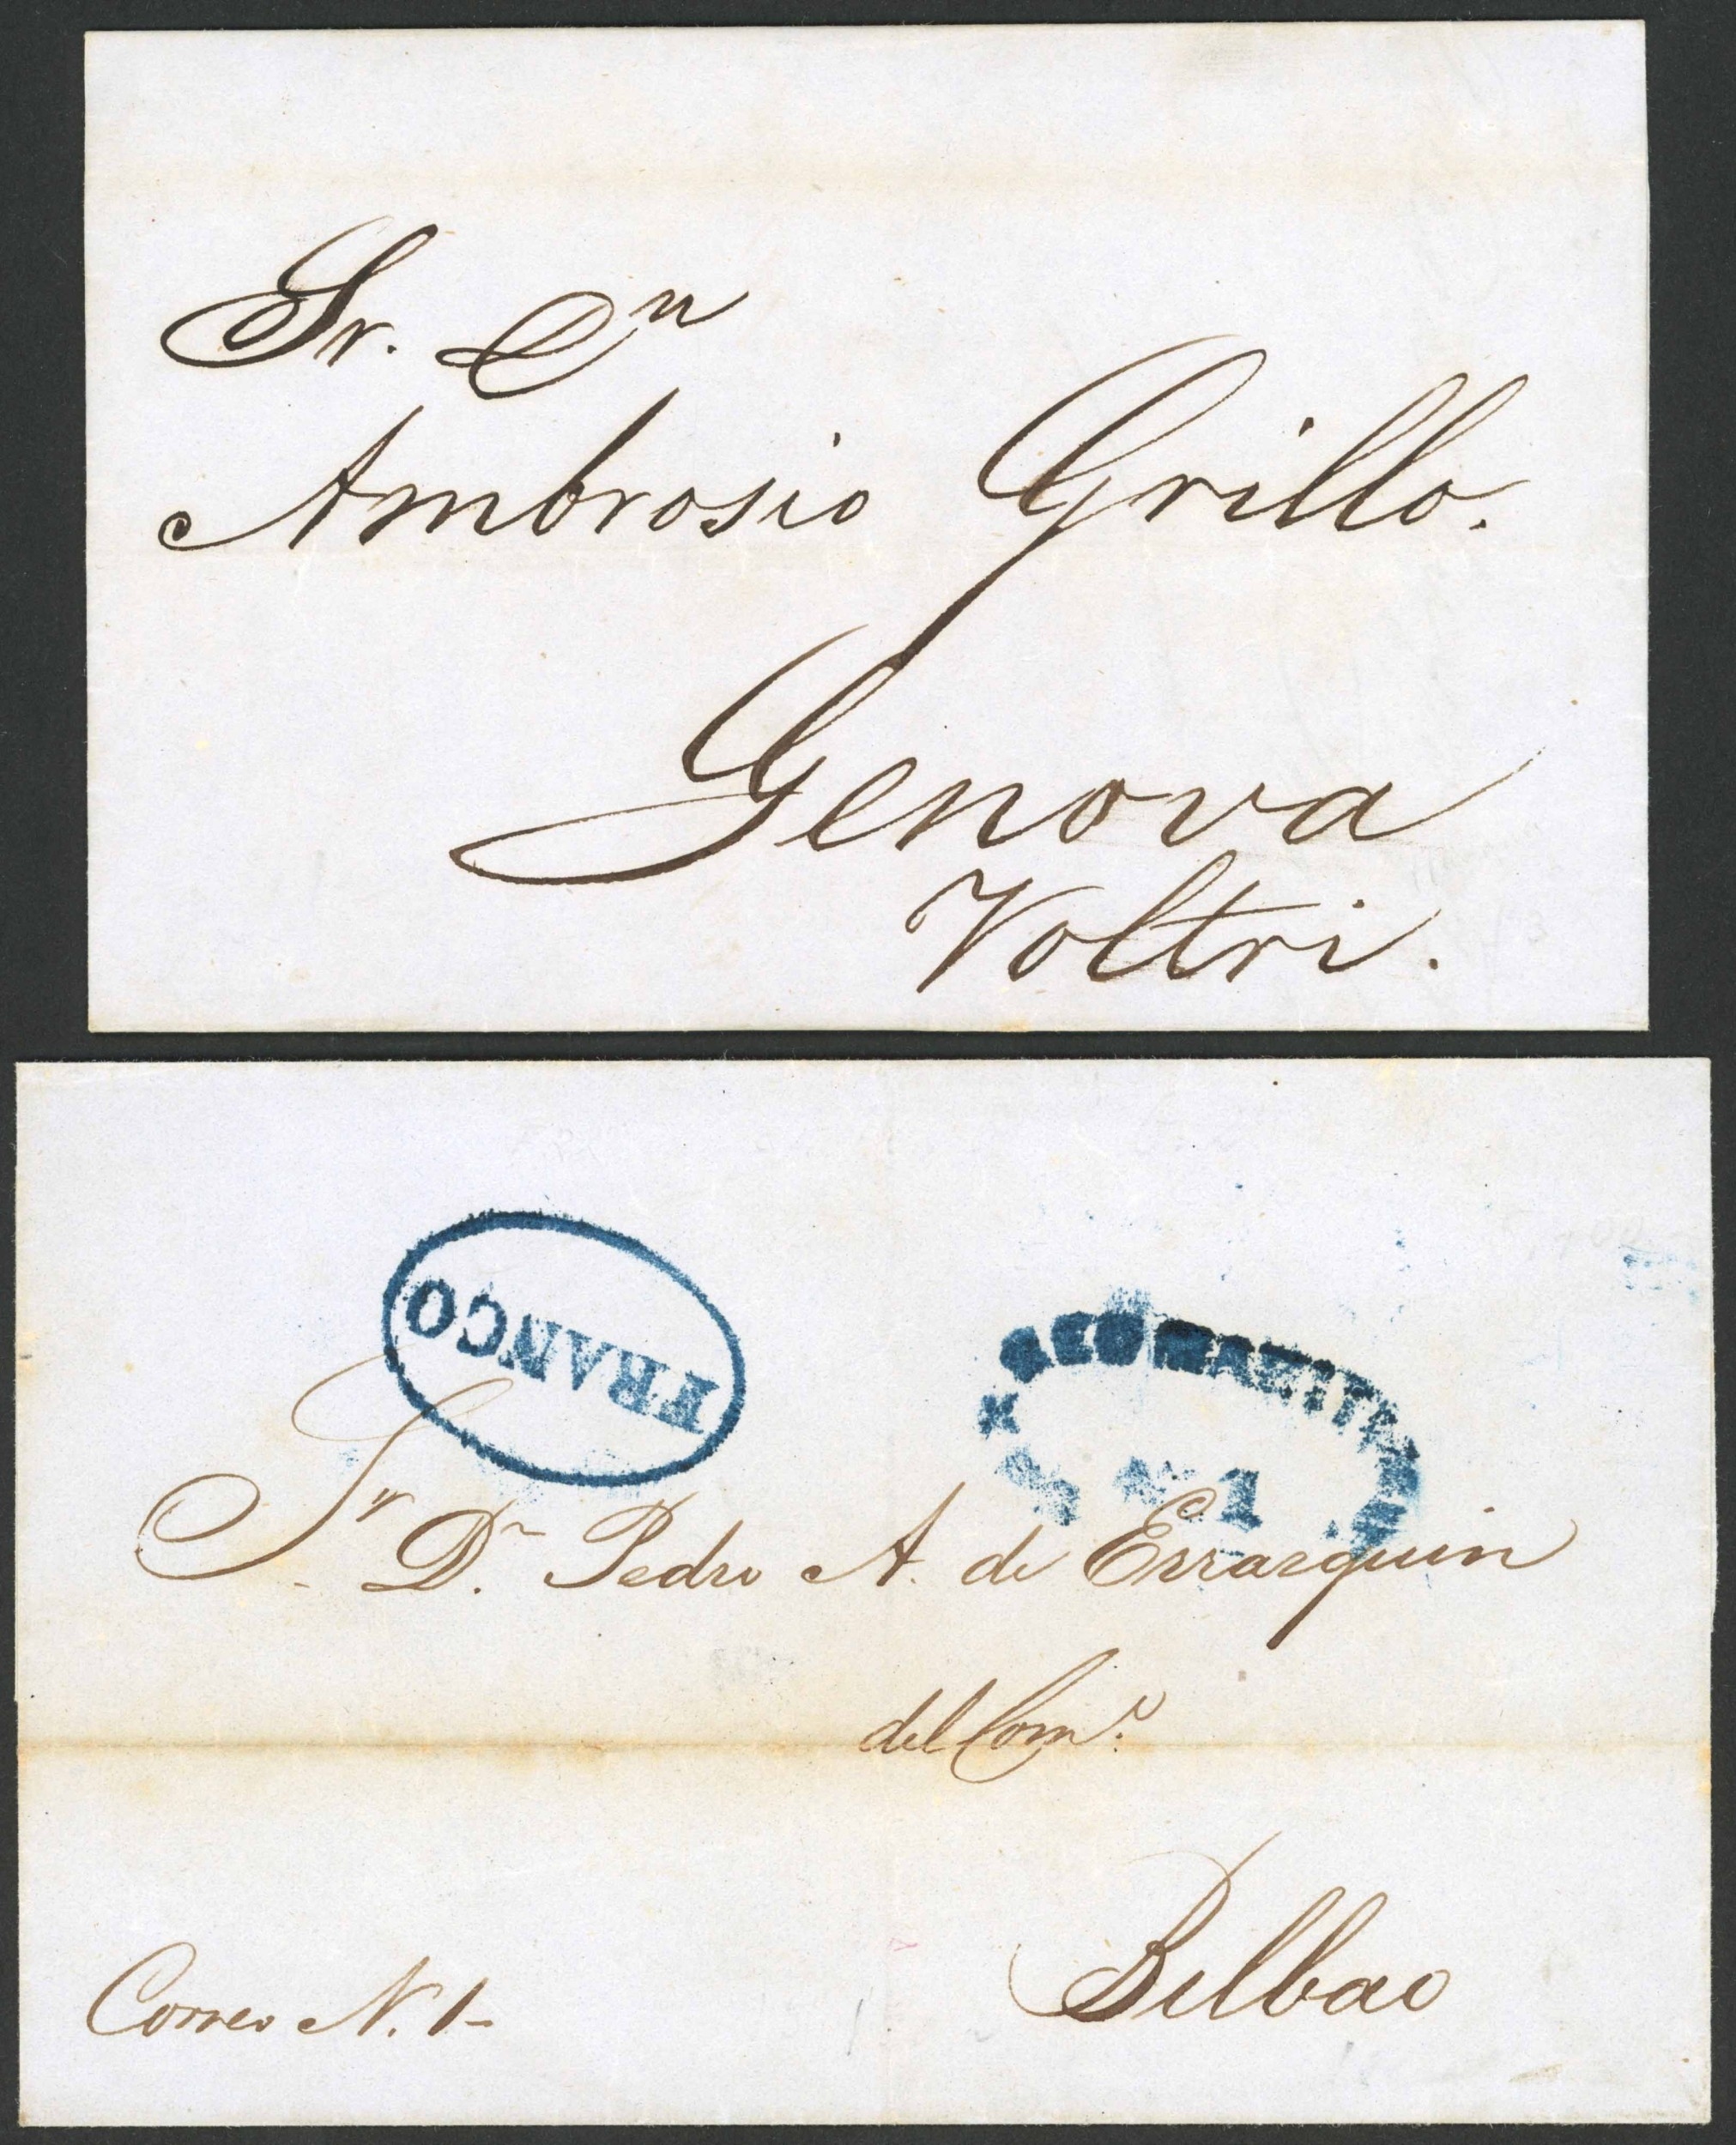 Sr. Dn
Ambrosio Grillo.
Genova
Voltri.
FRANCO
Nº 1
Sr Dn Pedro A. de Errazquin
del Como.
Bilbao
Correo N. 1-